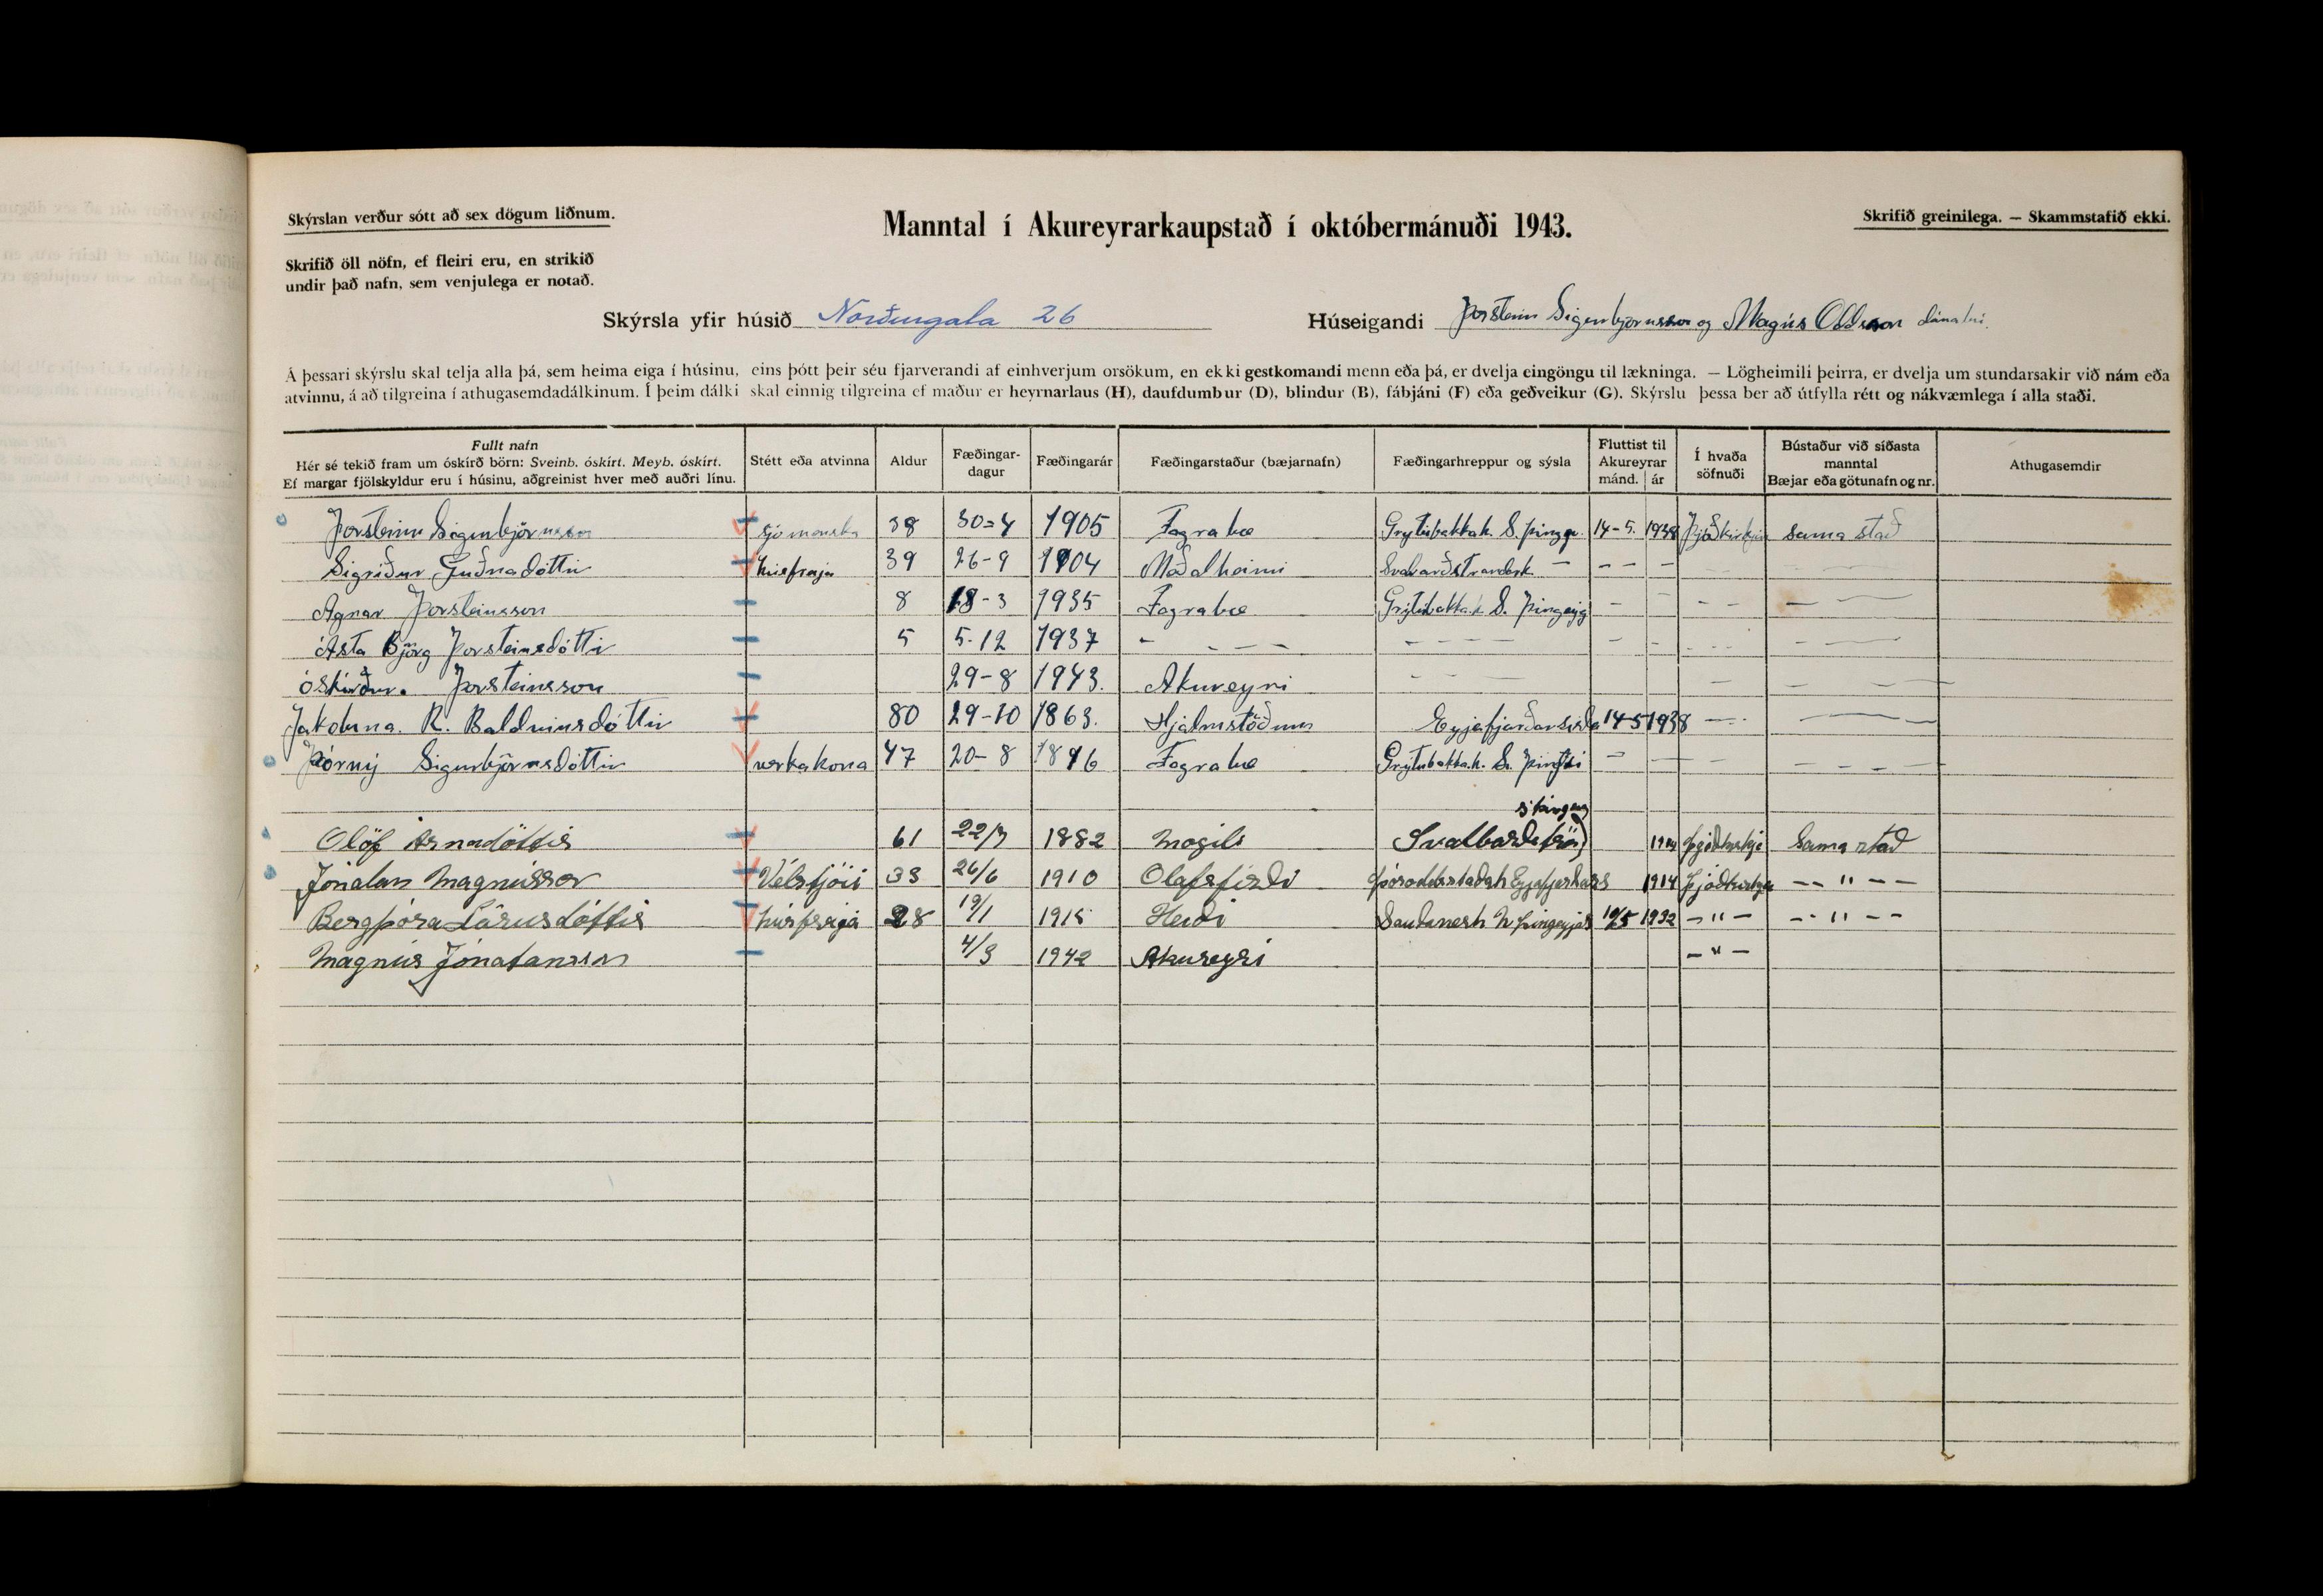 Skýrslan verður sótt að sex dögum liðnum.
Manntal í Akureyrarkaupstað í októbermánuði 1943.
Skrifið greinilega. — Skammstafið ekki.
Skrifið öll nöfn, ef fleiri eru, en strikið
undir það nafn, sem venjulega er notað.
Skýrsla yfir húsið Norðurgata 26 Húseigandi Þorsteinn Sigurbjörnsson og Magnús Oddsson
Á þessari skýrslu skal telja alla þá, sem heima eiga í húsinu, eins þótt þeir séu fjarverandi af einhverjum orsökum, en ekki gestkomandi menn eða þá, er dvelja eingöngu til lækninga. — Lögheimili þeirra, er dvelja um stundarsakir við nám eða
atvinnu, á að tilgreina í athugasemdadálkinum. Í þeim dálki skal einnig tilgreina ef maður er heyrnarlaus (H), daufdumbur (D), blindur (B), fábjáni (F) eða geðveikur (G). Skýrslu þessa ber að útfylla rétt og nákvæmlega í alla staði.
Fullt nafn
Hér sé tekið fram um óskírð börn: Sveinb. óskírt. Meyb. óskírt.
Ef margar fjölskyldur eru í húsinu, aðgreinist hver með auðri línu.
Stétt eða atvinna
Aldur
Fæðingar-
dagur
Fæðingarár
Fæðingarstaður (bæjarnafn)
Fæðingarhreppur og sýsla
Fluttist til
Akureyrar
mánd. ár
Í hvaða
söfnuði
Bústaður við síðasta
manntal
Bæjar eða götunafn og nr.
Athugasemdir
Þorsteinn Sigurbjörnsson sjómenska 38 30=4 1905 Fagrabæ Grýtubakkah. S. Þingey. 14-5. 1938 Þjóðkirkju sama stað
Sigríður Guðnadóttir húsfreyja 39 26-9 1904 Meðalheimi Svalbarðstrandark. — — — —
Agnar Þorsteinsson 8 18-3 1935 Fagrabæ Grýtubakka.h S. Þingeyj — — — — —
Ásta Björg Þorsteinsdóttir 5 5-12 1937 - - — — — — — —
óskírður. Þorsteinsson 29-8 1943. Akureyri - — — — — —
Jakobína. R. Baldvinsdóttir 80 29-10 1863. Hjálmstöðum Eyjafjarðarsýsla 14-5 1938 — —
Þórný Sigurbjörnsdóttir verkakona 47 20-8 1896 Fagrabæ Grýtubakka.h. S. Þing — — — — — —
S Þingey
Ólöf Árnadóttir 61 22/7 1882 Mógili Svalbarðströnd 1914 Þjóðkirkju Sama stað
Jónatan Magnússon Vélstjóri 33 26/6 1910 Ólafsfirði Þóroddsstaðah Eyjafjarðars 1914 Þjóðkirkju -- " --
Bergþóra Lárusdóttir húsfreyja 28 19/1 1915 Heiði Sauðanesh N Þingeyjas 10/5 1932 - " - -- " --
Magnús Jónatansson 4/3 1942 Akureyri - " -